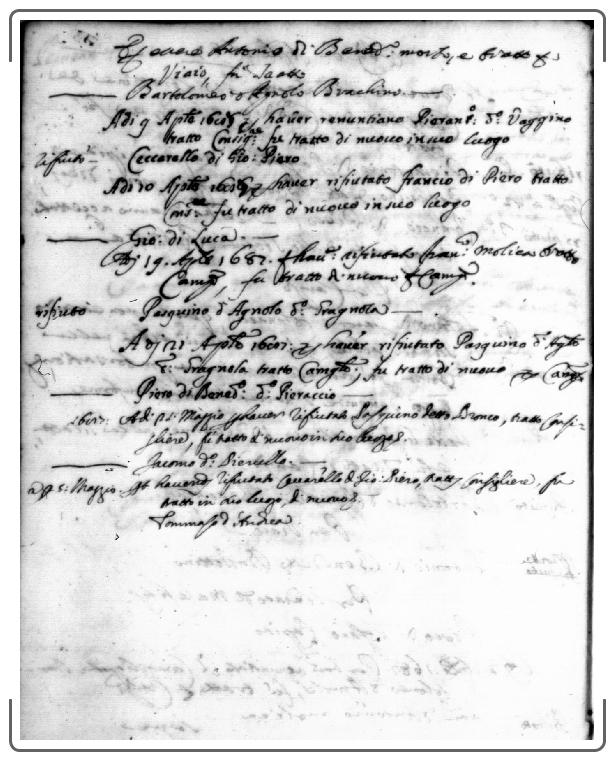 P essere Antonio di Bened.º morto, e tratto p
Viaio, fu tratto
Bartolomeo d Agnolo Brachino.
Adi 9 Aple 1687 p haver renuntiano Pierant.º d.º Vaggino
tratto Consig.re fu tratto di nuovo in suo luogo
rifiutò Ceccarello di Gio: Piero
Adi 10 Aple 1687 p haver rifiutato francio di Piero tratto
Cons.re fu tratto di nuovo in suo luogo
Gio: di Luca.
Adj 19. Aple 1687. p hav.r rifiutato fran.º Molica tratto
Camg.º, fu tratto di nuovo p Camg.º
rifiutò Pasquino d Agnolo d.º Fragnola
Adj 21 Aple 1687: p haver rifiutato Pasquino d. Agl.º
Fragnola tratto Camgl.º, fu tratto di nuovo p Camg.º
Piero di Bened.º d.º Pieraccio
1687: Adi 21. Maggio p haver rifiutato Pasquino detto Bronco, tratto Consi-
gliere, fu tratto di nuovo in suo luogo
Jacomo d.º Pierello.
Adi 5: Maggio p haver rifiutato Ceccarello di Gio: Piero, tratto Consigliere, fu
tratto in suo luogo, di nuovo
Tommaso d Andrea.